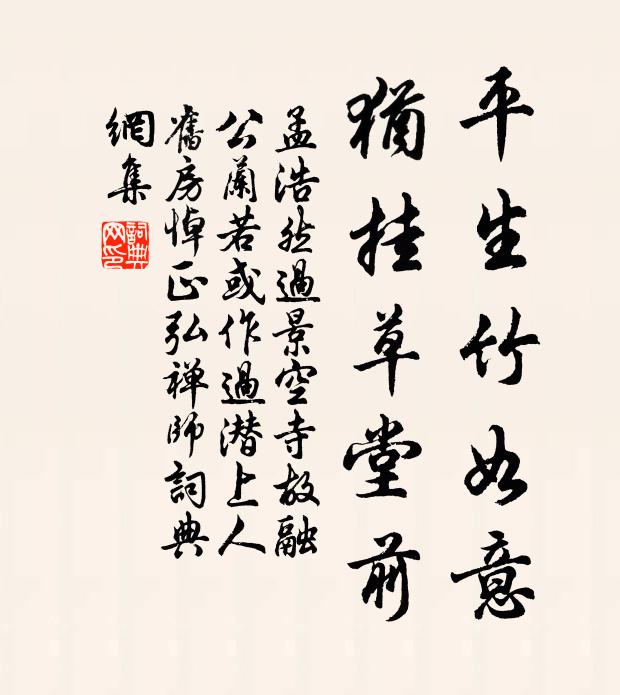 平生竹如意
猶挂草堂前
孟浩然過景空寺故融
公蘭若或作過潛上人
舊房悼正弘禅師詞典
網集
詞典
网印